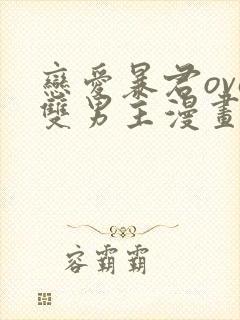 戀愛暴君ova
雙男主漫畫
容霸霸